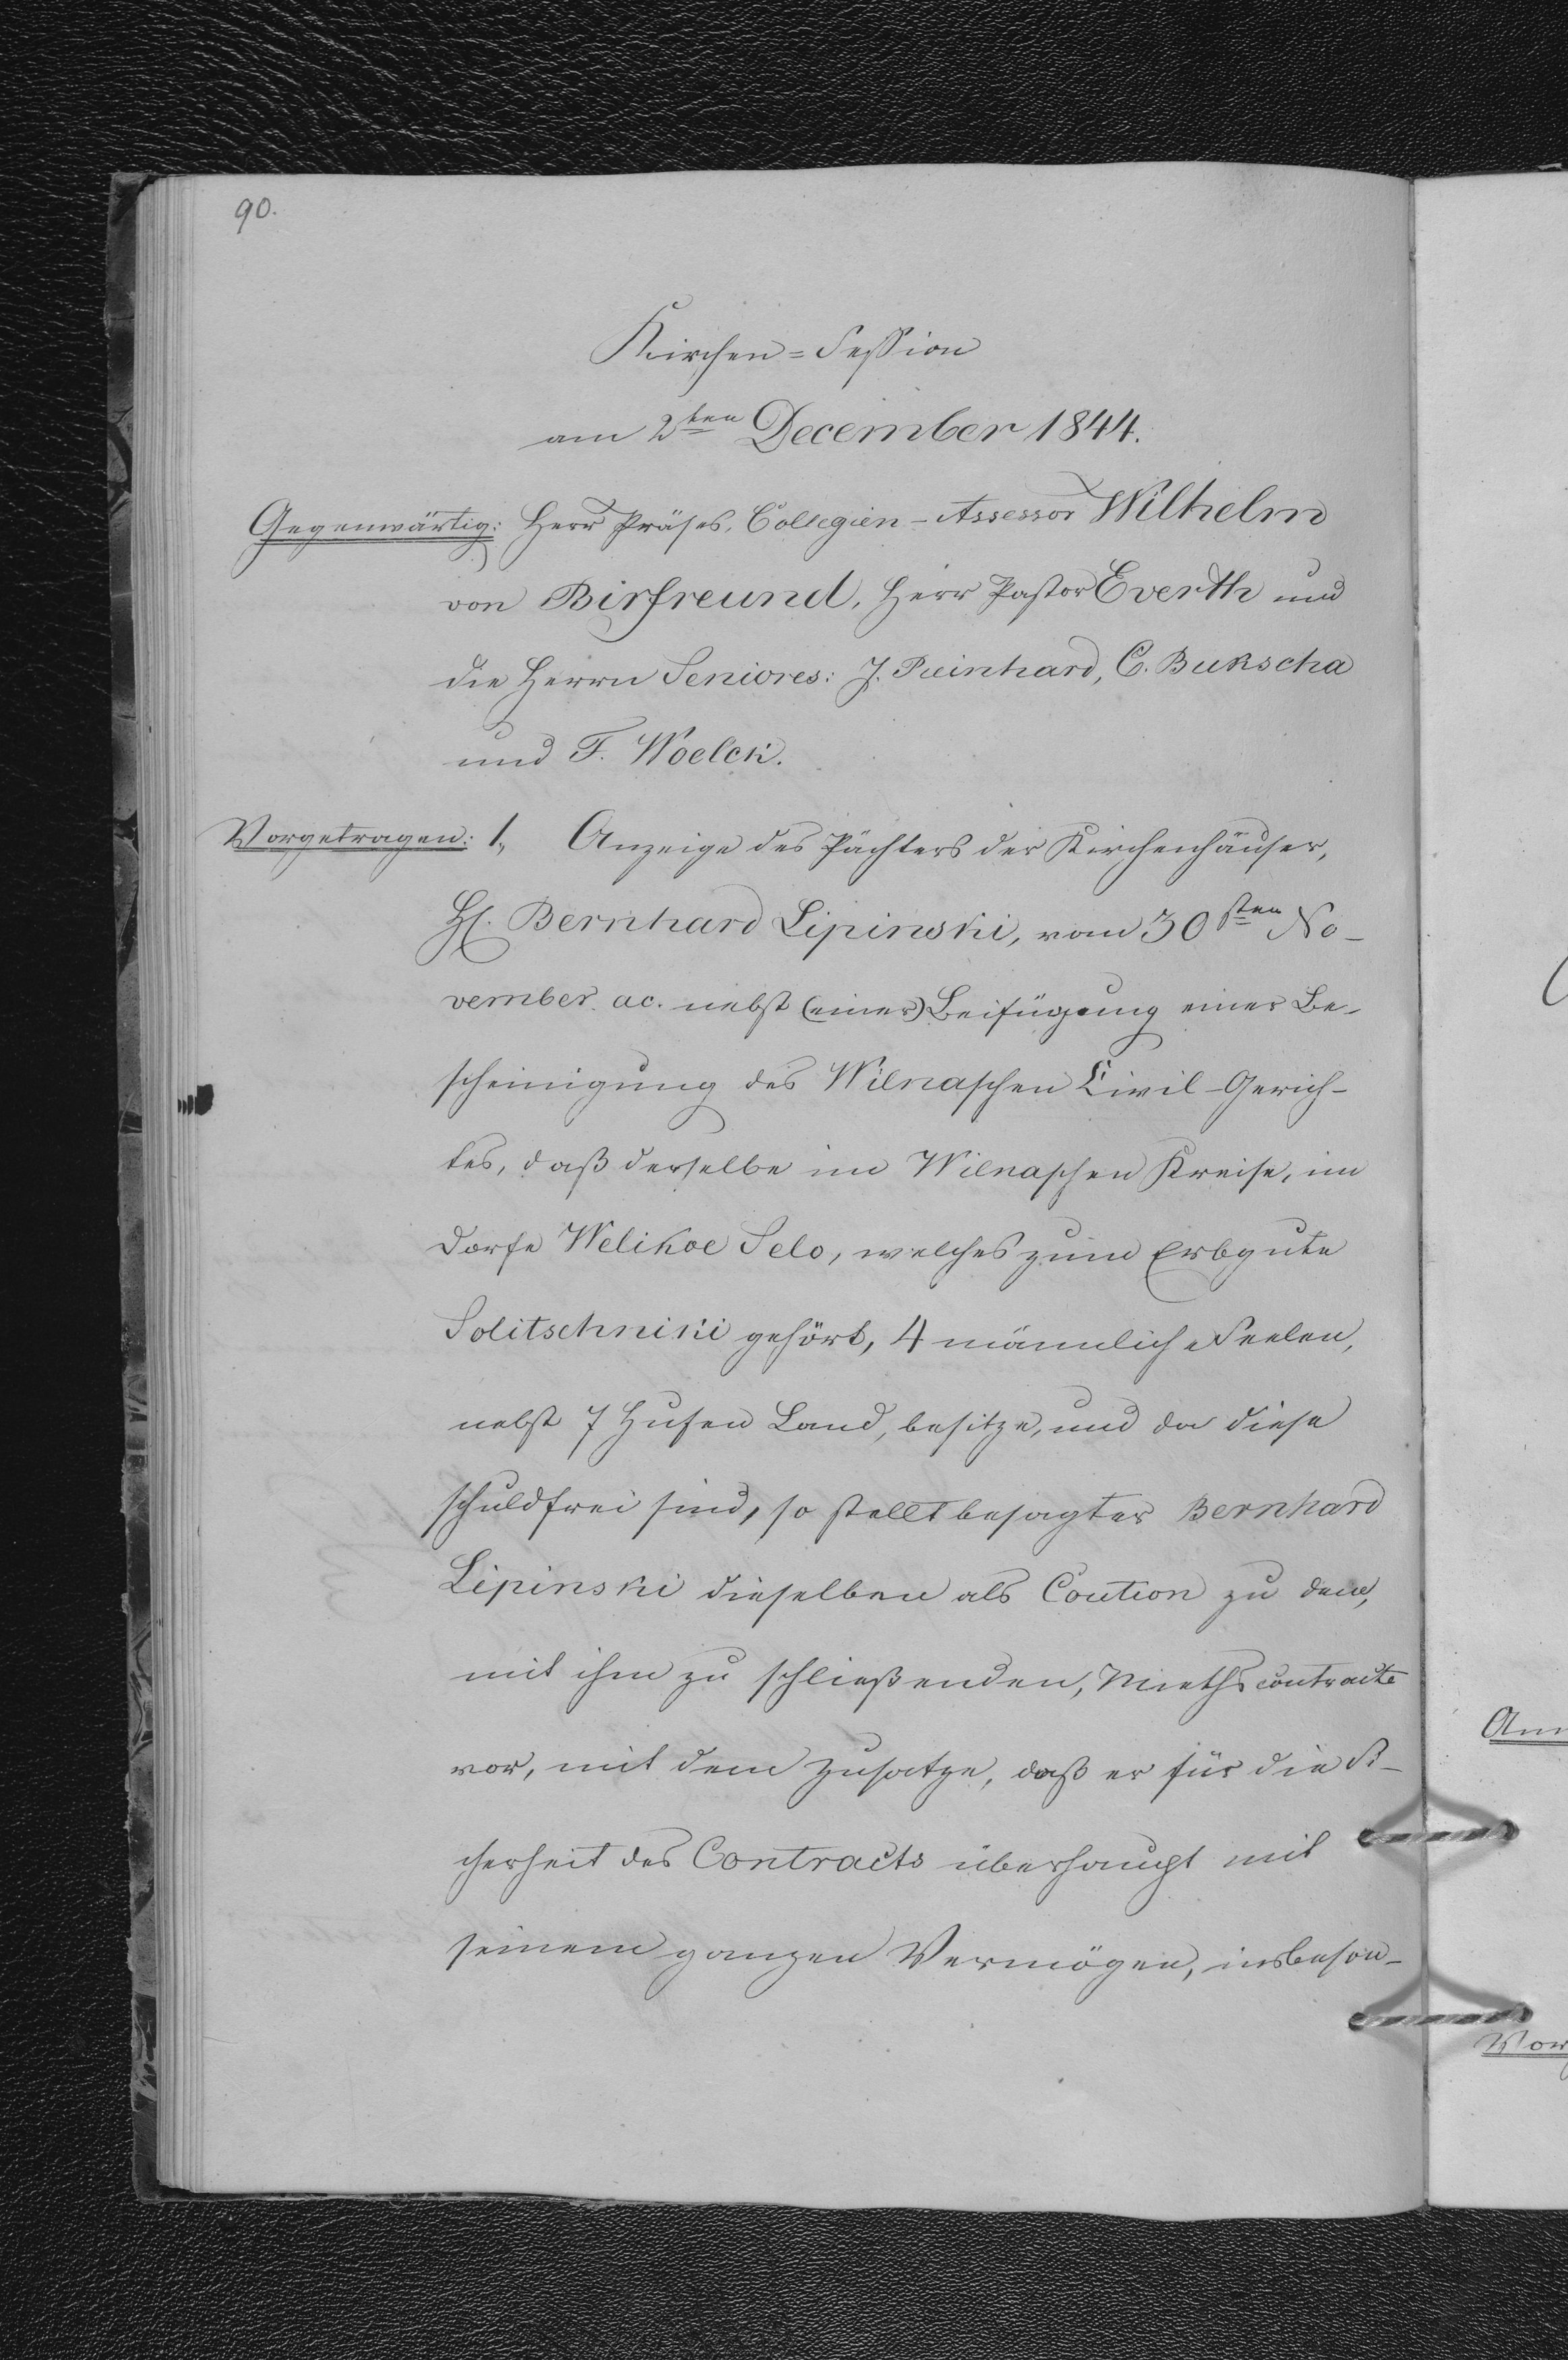 90.
Kirchen=Session
am 2ten December 1844.
Gegenwärtig: Herr Präses, Collegien-Assessor Wilhelm
von Birfreund, Herr Pastor Everth und
die Herrn Seniores: J. Reinhard, C. Bukscha
und F. Woelck.
Vorgetragen: 1., Anzeige des Pächters der Kirchenhäuser,
H. Bernhard Lipinski, vom 30sten No-
vember ac. nebst (einer) Beifügung einer Be-
scheinigung des Wilnaschen Civil-Gerich-
tes, daß derselbe im Wilnaschen Kreise, im
Dorfe Welikoe Selo, welches zum Erbgute
Solitschniki gehört, 4 männliche Seelen,
nebst 7 Hufen Land, besitze, und da diese
schuldfrei sind, so stellt besagter Bernhard
Lipinski dieselben als Coution zu dem,
mit ihm zu schließenden, Miethscontracte
vor, mit dem Zusatze, daß er für die Si-
cherheit des Contracts überhaupt mit
seinem ganzen Vermögen, insbeson-